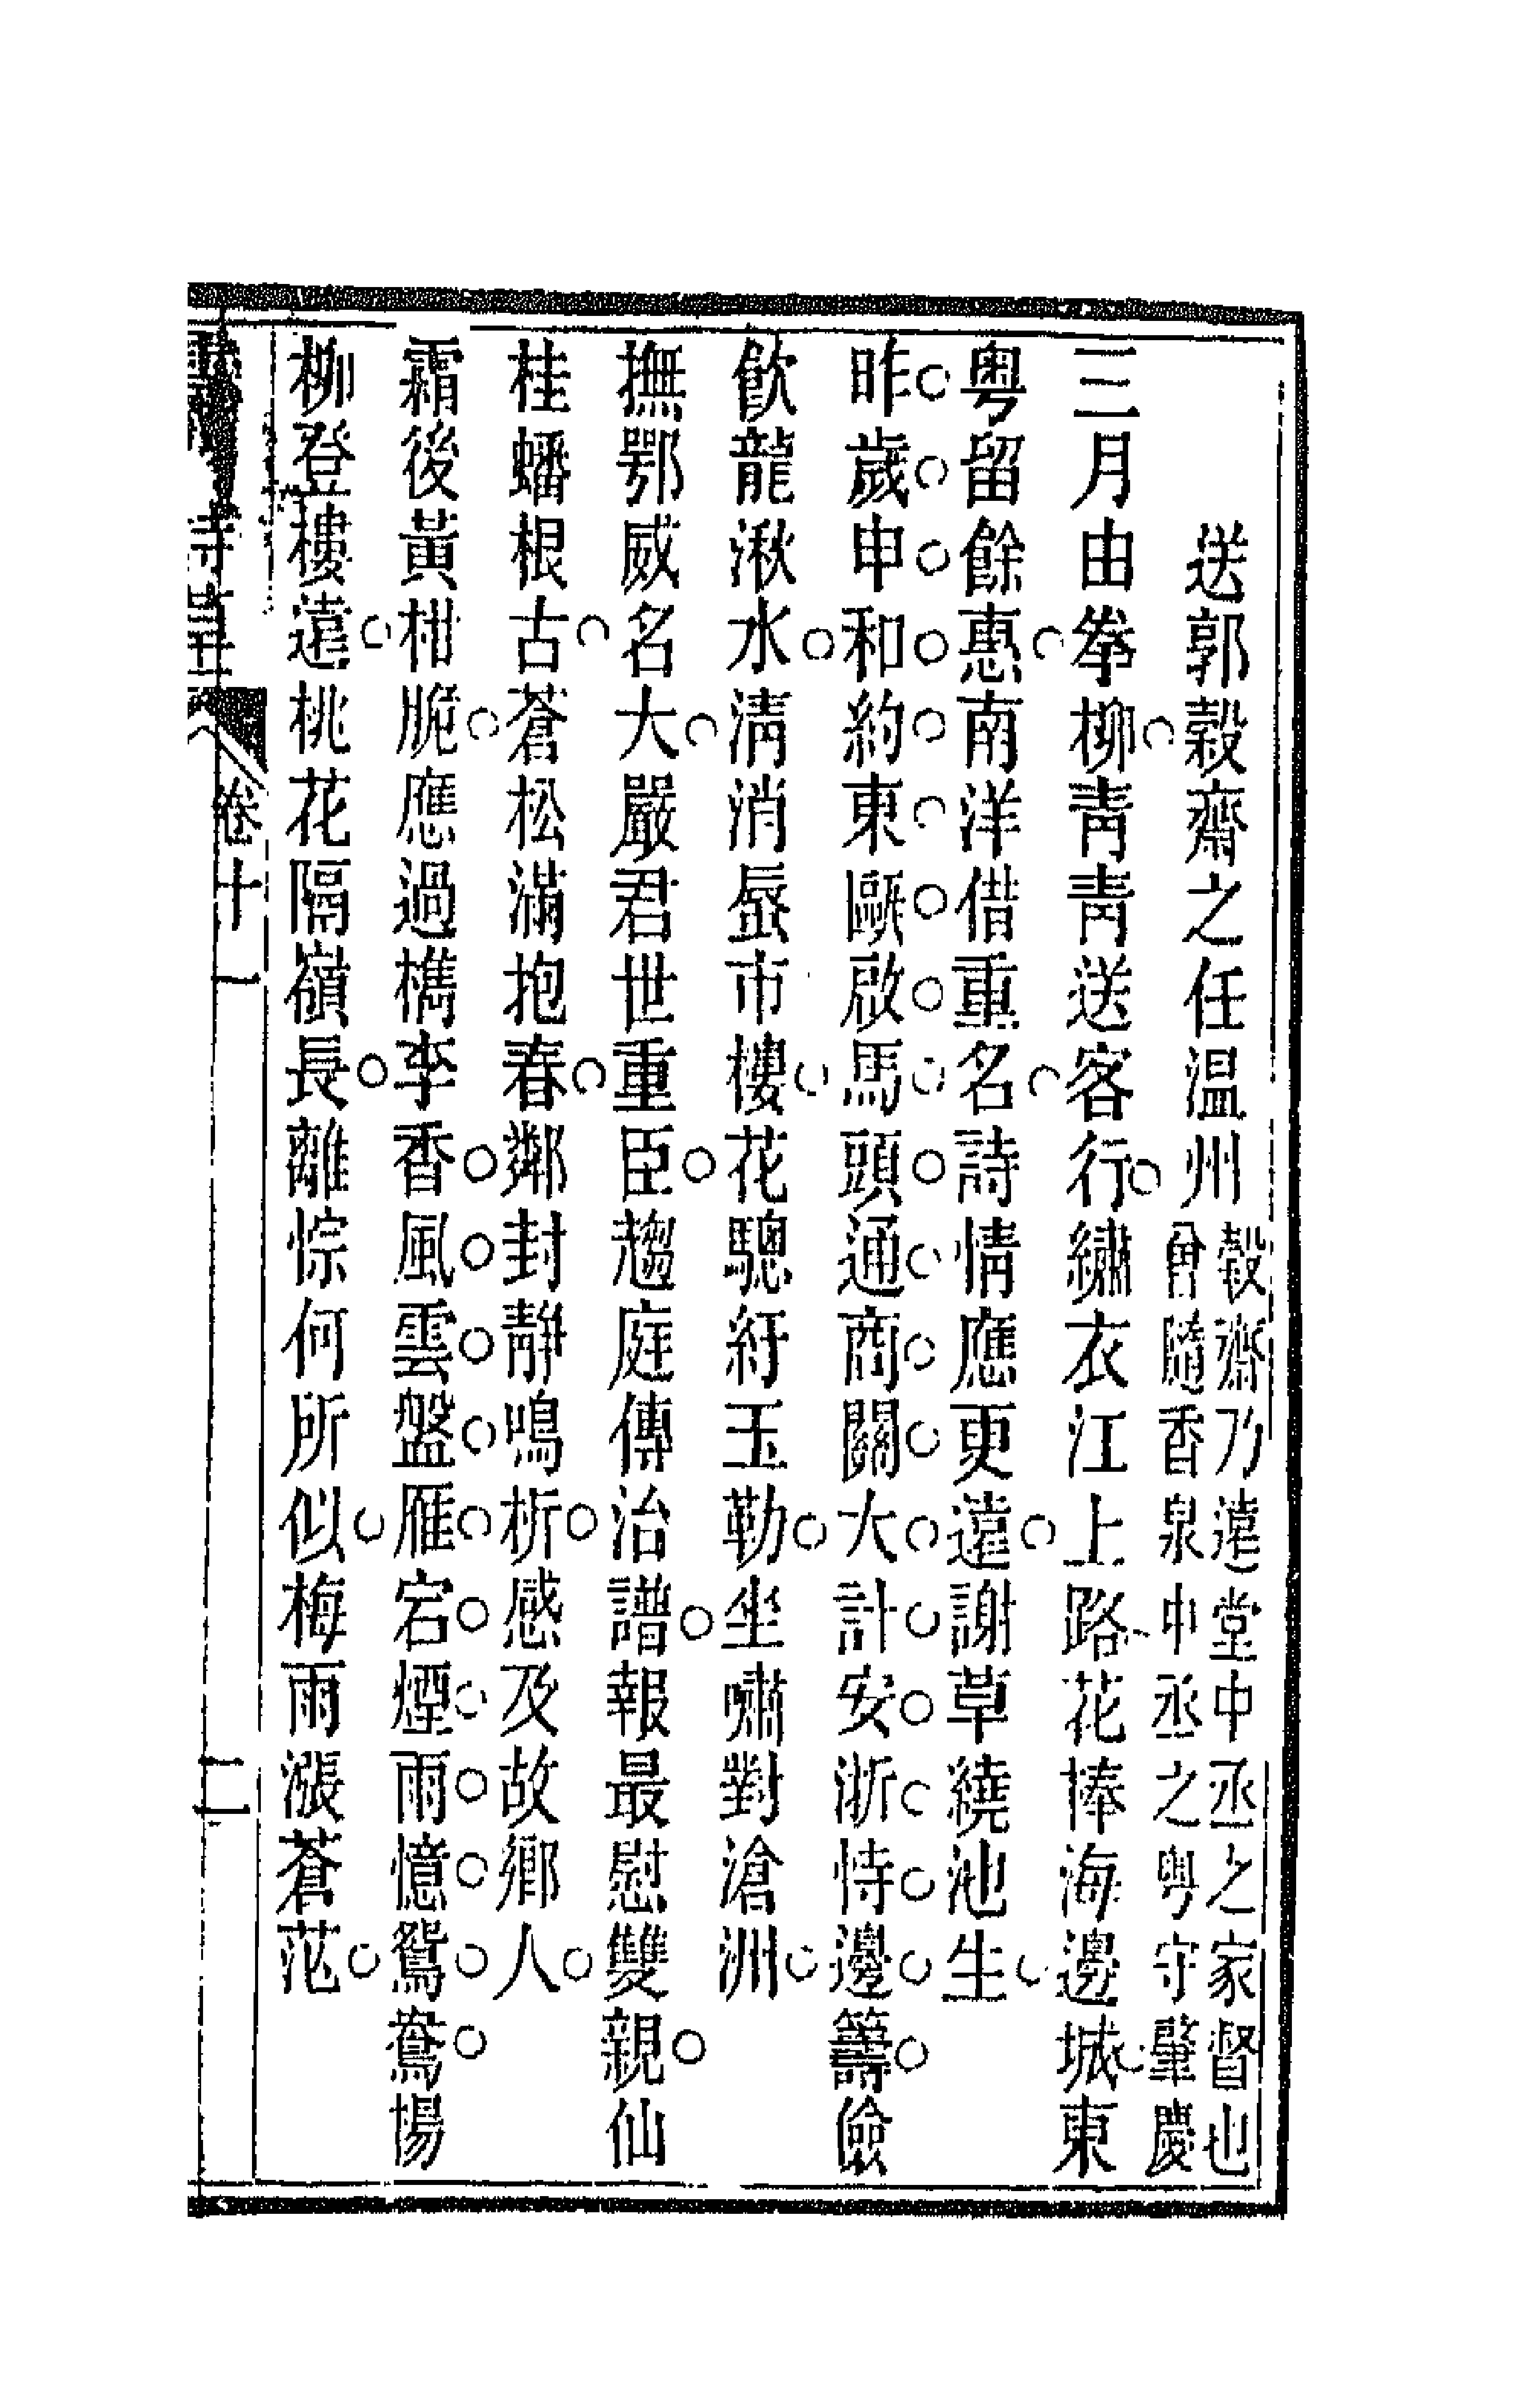 送郭穀齋之任温州穀齋乃遠堂中丞之家督也
曾隨香泉中丞之粤守肇慶
三月由拳柳青青送客行繡衣江上路花捧海邊城東
粤留餘惠南洋借重名詩情應更遠謝草繞池生
昨歲申和約東甌啟馬頭通商關大計安浙恃邊籌儉
飲龍湫水清消蜃市樓花驄紆玉勒坐嘯對滄洲
撫鄂威名大嚴君世重臣趨庭傳治譜報最慰雙親仙
桂蟠根古蒼松滿抱春鄰封靜鳴析感及故鄉人
霜後黃柑脆應過檇李香風雲盤雁宕煙雨憶鴛鴦場
柳登樓遠桃花隔嶺長離悰何所似梅雨漲蒼茫
詩草
卷十一
二